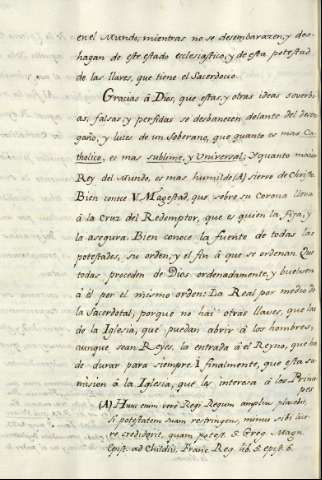 en el Mundo, mientras no se desembarazen, y des-
hagan de este estado eclesiastico, y de esta potestad
de las llaves, que tiene el Sacerdocio.
Gracias á Dios, que estas, y otras ideas sover-
bias, falsas y perfidas se desbanecen delante del
gaño, y luzes de un Soberano, que quanto es mas Ca-
tholico, es mas sublime, y Universal: Y quanto
Rey del Mundo, es mas humilde (A) siervo de Christo
Bien conoce V. Magestad, que sobre su Corona lleva
á la Cruz del Redemptor, que es quien la fija, y
la asegura. Bien conoce la fuente de todas las
potestades, su orden, y el fin á que se ordenan. Que
todas proceden de Dios ordenadamente, y buelven
á él por el mismo orden: La Real por medio de
la Sacerdotal; porque no hai otras llaves, que las
de la Iglesia, que puedan abrir á los hombres,
aunque sean Reyes, la entrada á el Reyno, que ha
de durar para siempre. I finalmente, que esta su-
mision á la Iglesia, que les interesa á los Princi-
pes
(A) Huic enim vero Regi Regum amplius placebit,
si potestatem suam restringens, minus sibi
crediderit, quam potest. S. Greg. Magn.
Epist. ad Childib. Franc. Reg. lib. 5. epist. 6.